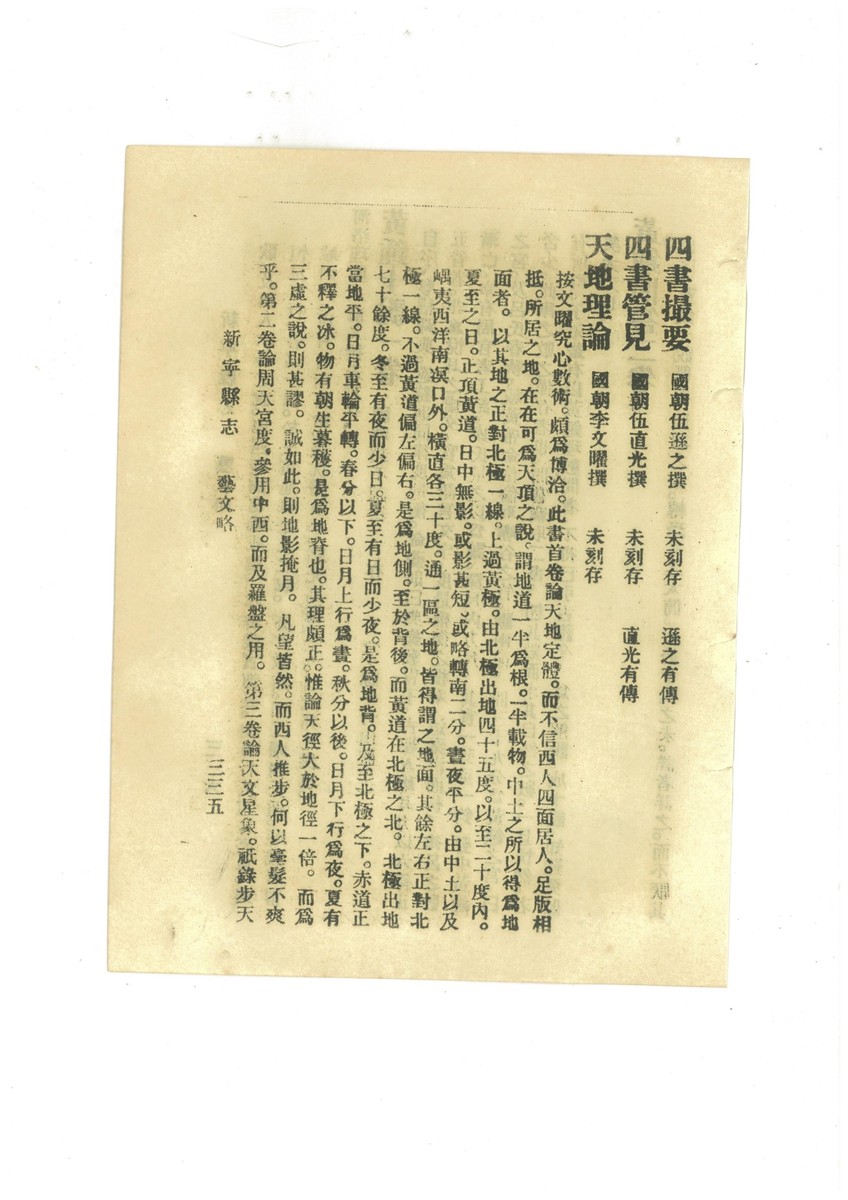 四書撮要 國朝伍遜之撰 未刻存 遜之有傳
四書管見 國朝伍直光撰 未刻存 直光有傳
天地理論 國朝李文曜撰 未刻存
按文曜究心數術。頗爲博洽。此書首卷論天地定體。而不信西人四面居人。足版相
抵。所居之地。在在可爲天頂之說。謂地道一半爲根。一半載物。中土之所以得爲地
面者。以其地之正對北極一線。上過黃極。由北極出地四十五度。以至二十度內。
夏至之日。正頂黃道。日中無影。或影甚短、或略轉南二分。晝夜平分。由中土以及
嵎夷西洋南溟口外。橫直各三十度。通一區之地。皆得謂之地面。其餘左右正對北
極一線。不過黃道偏左偏右。是爲地側。至於背後。而黃道在北極之北。北極出地
七十餘度。冬至有夜而少日。夏至有日而少夜。是爲地背。及至北極之下。赤道正
當地平。日月車輪平轉。春分以下。日月上行爲晝。秋分以後。日月下行爲夜。夏有
不釋之冰。物有朝生暮穫。是爲地脊也。其理頗正。惟論天徑大於地徑一倍。而爲
三虛之說。則甚謬。誠如此。則地影掩月。凡望皆然。而西人推步。何以毫髮不爽
乎。第二卷論周天宮度。參用中西。而及羅盤之用。第三卷論天文星象。祇錄步天
新寧縣志 藝文略 三三五